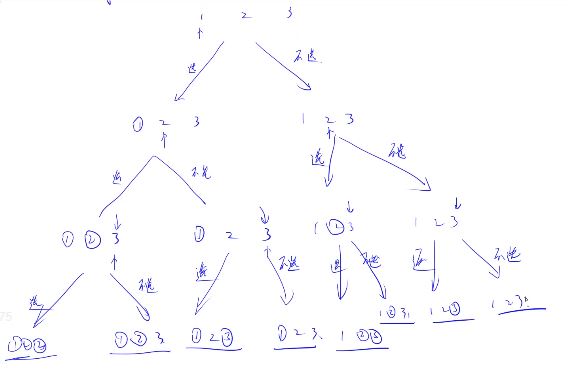 1 2 3
选 不选
① 2 3 1 2 3
选 不选 选 不选
① ② 3 ① 2 3 1 ② 3 1 2 3
选 不选 选 不选 选 不选 选 不选
1 ② 3 1 2 ③ 1 2 3
①②③ ①② 3 ① 2 ③ ① 2 3 1 ②③